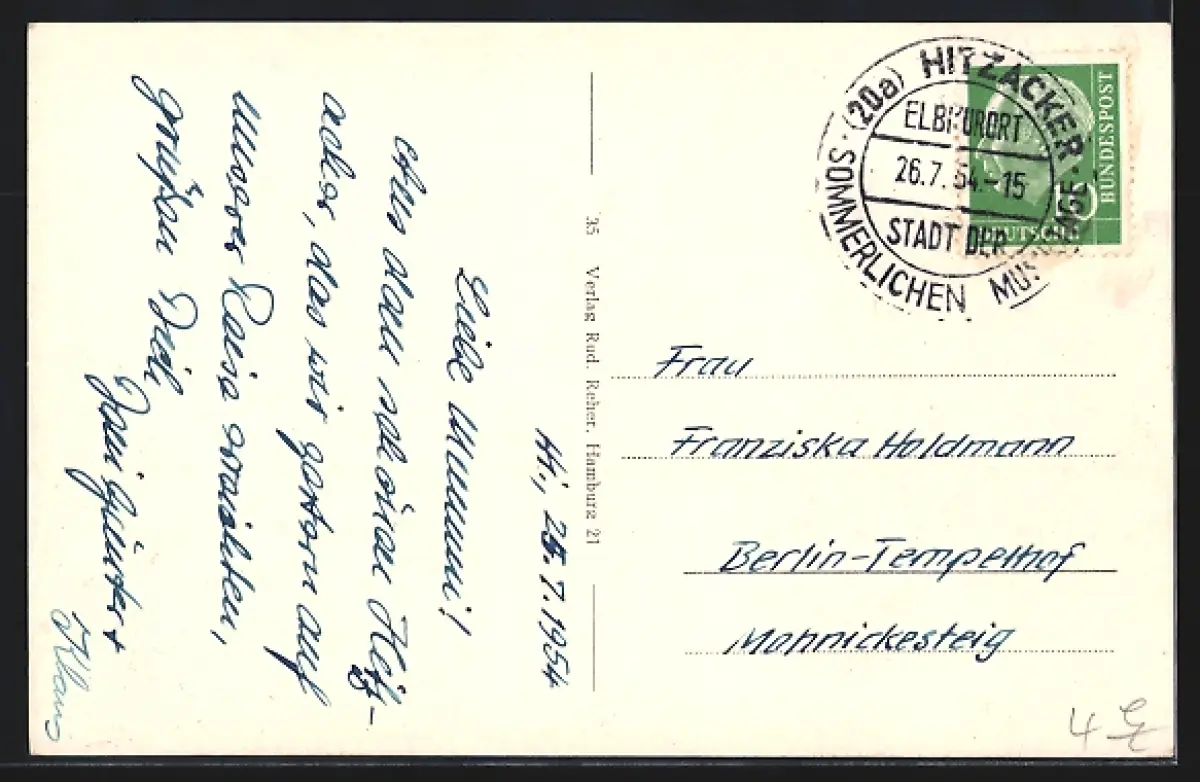 Hi, 25.7.1954
Liebe Mummi!
Aus dem schönen Hitz-
acker, das wir gestern auf
unserer Reise erreichten,
grüßen Dich
Dein Günter +
Klaus
35 Verlag Rud. Reher, Hamburg 21
(20a) HITZACKER
ELBKURORT
26.7.54.-15
STADT DER
SOMMERLICHEN MUSIKTAGE
10
DEUTSCHE
BUNDESPOST
Frau
Franziska Holdmann
Berlin-Tempelhof
Mahnickesteig
4